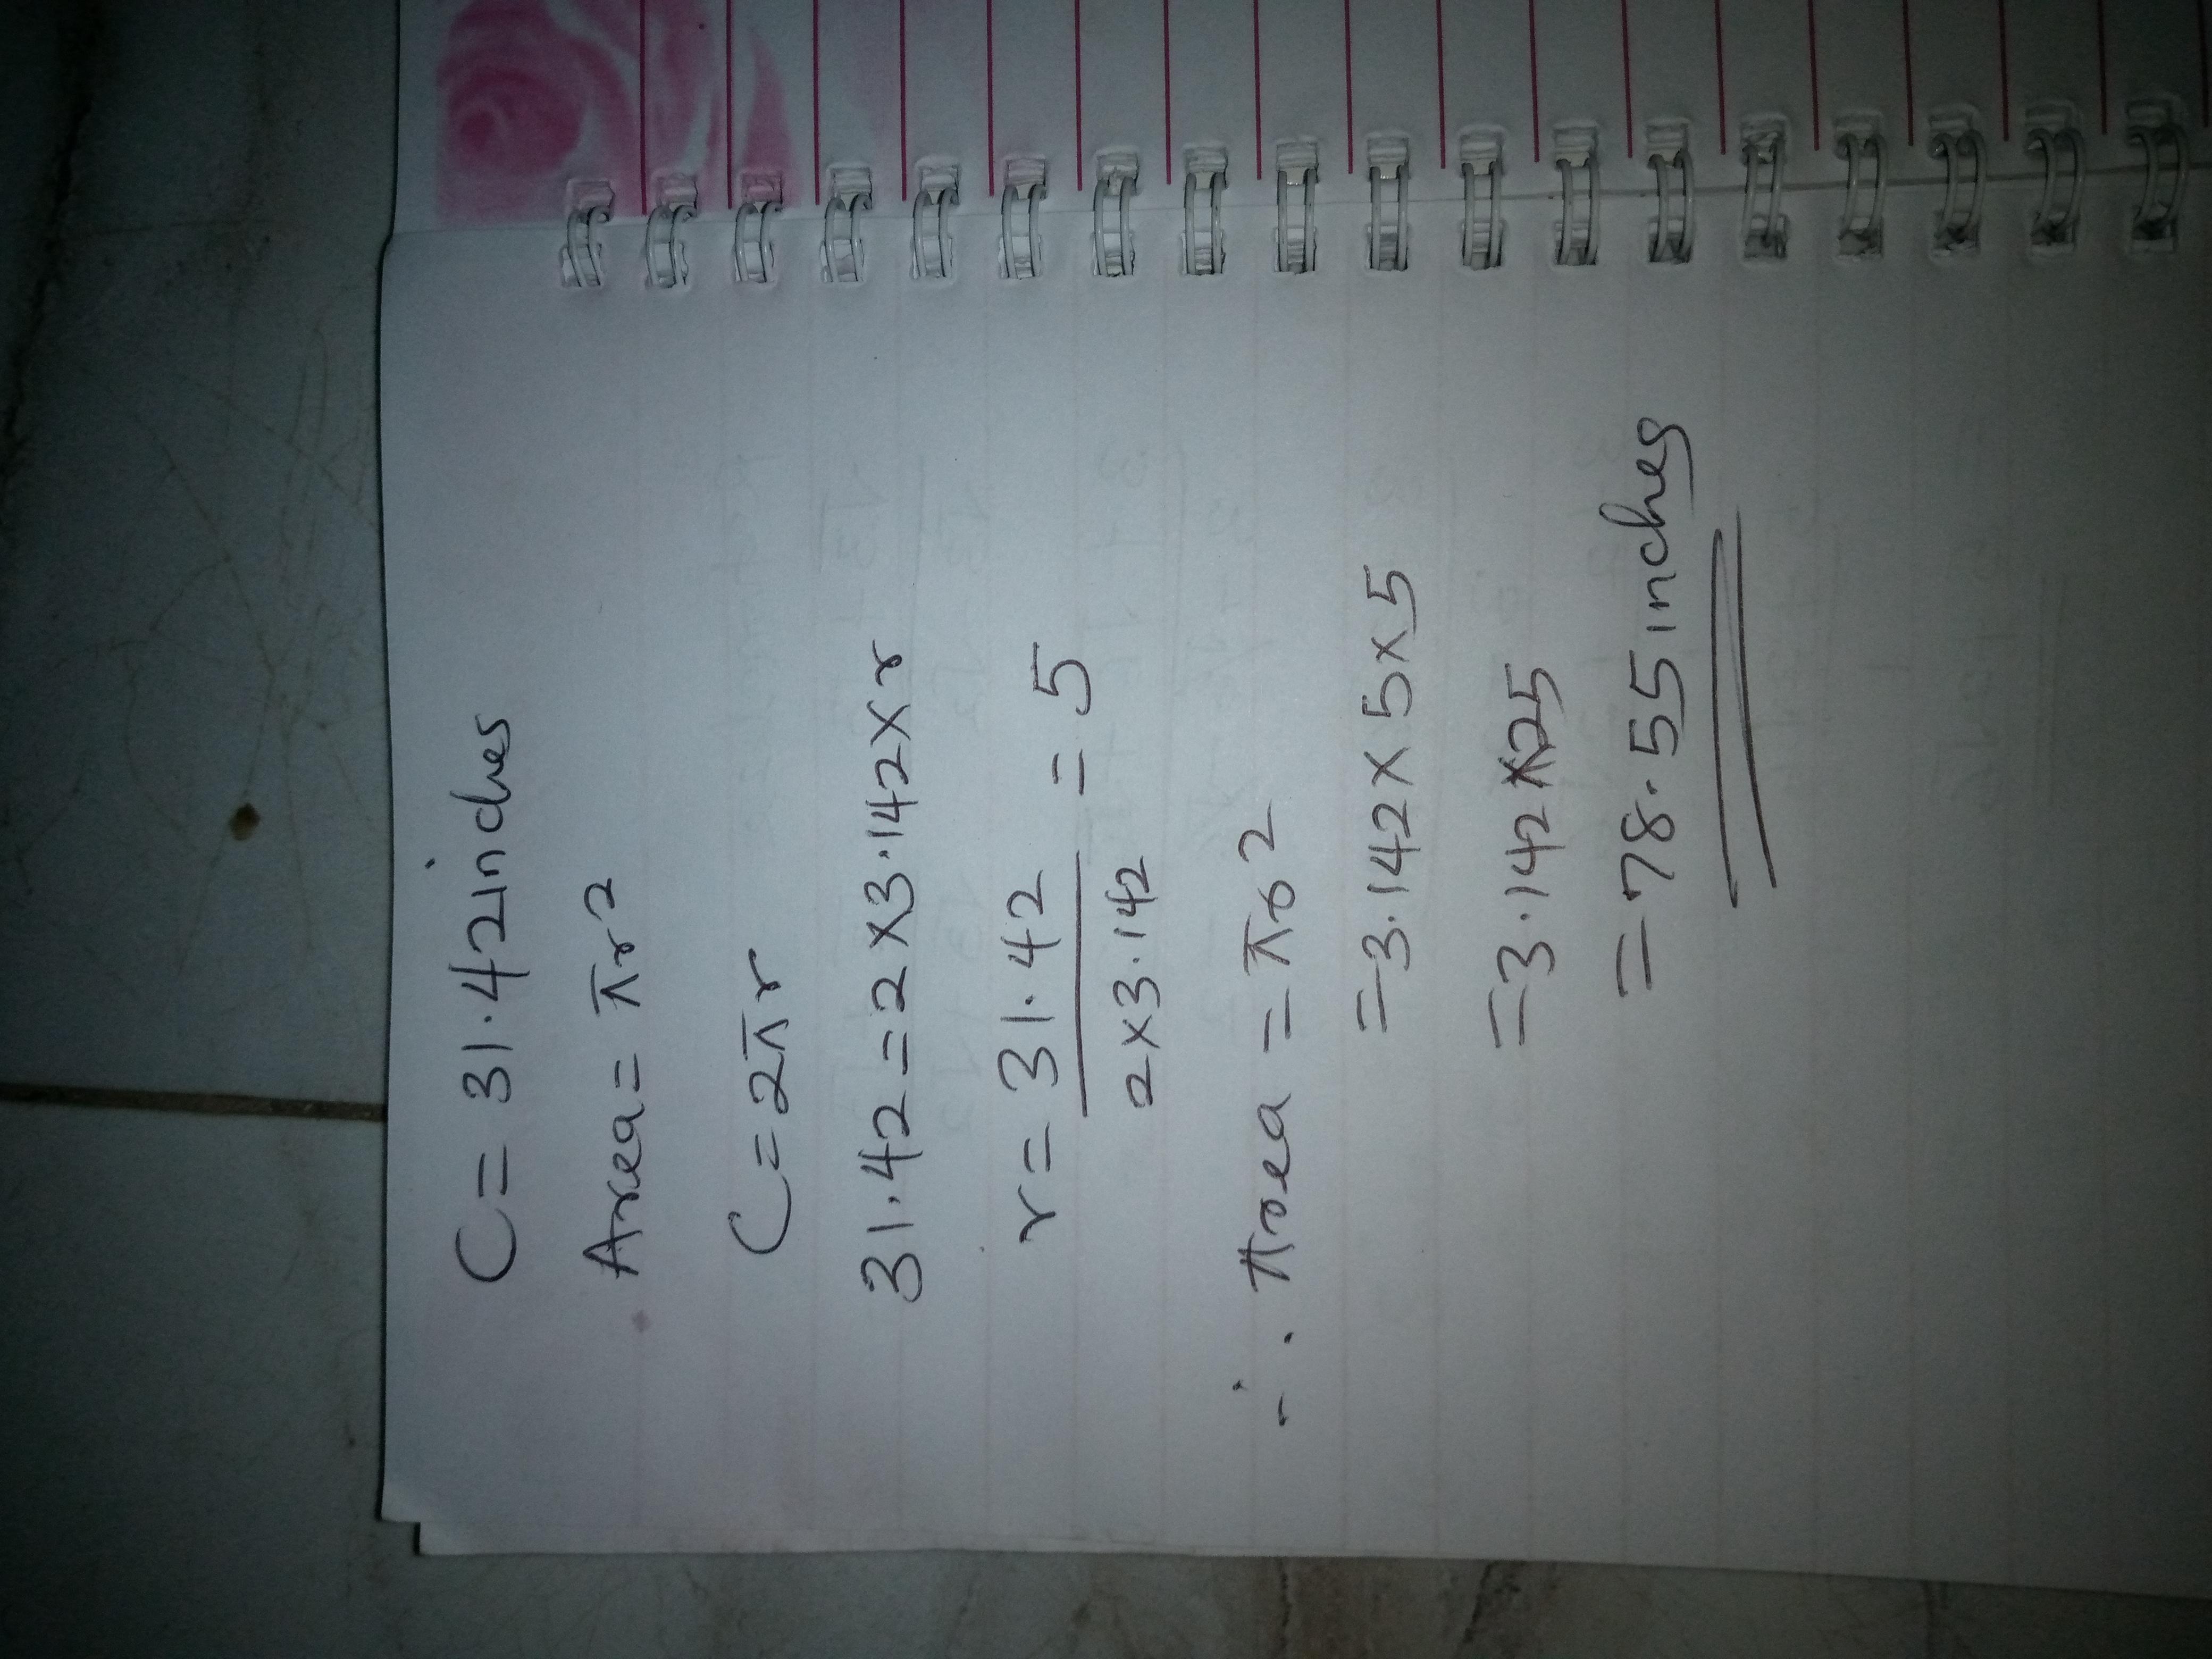 C = 31.42inches
Area = πr²
C = 2πr
31.42 = 2×3.142×r
r = 31.42 = 5
2×3.142
∴ Area = πr2
= 3.142 × 5 × 5
= 3.142 × 25
= 78.55 inches